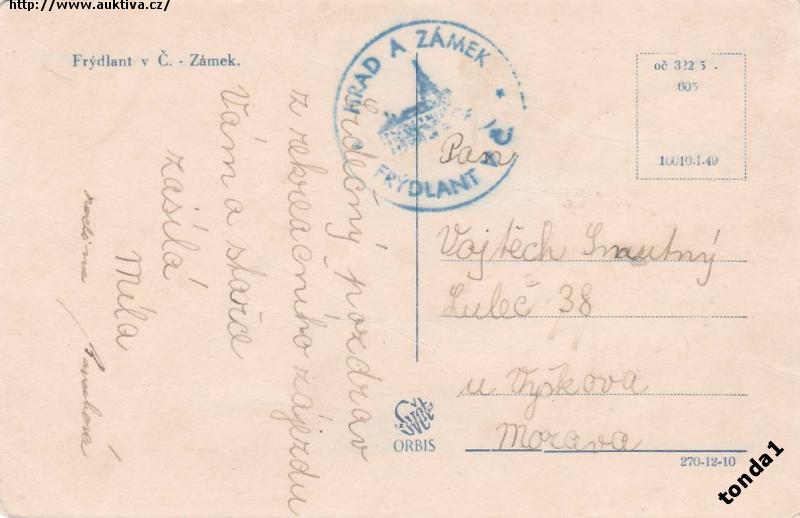 http://www.auktiva.cz/
Frýdlant v Č. - Zámek.
HRAD A ZÁMEK
FRÝDLANT V Č.
oč 322 5 -
605
10010-I-49
Srdečný pozdrav
z rekreačního zájezdu
Vám a stařce
zasílá
Míla
rodina
Pan
Vojtěch Smutný
Luleč 38
u Vyškova
Morava
ORBIS
270-12-10
tonda1